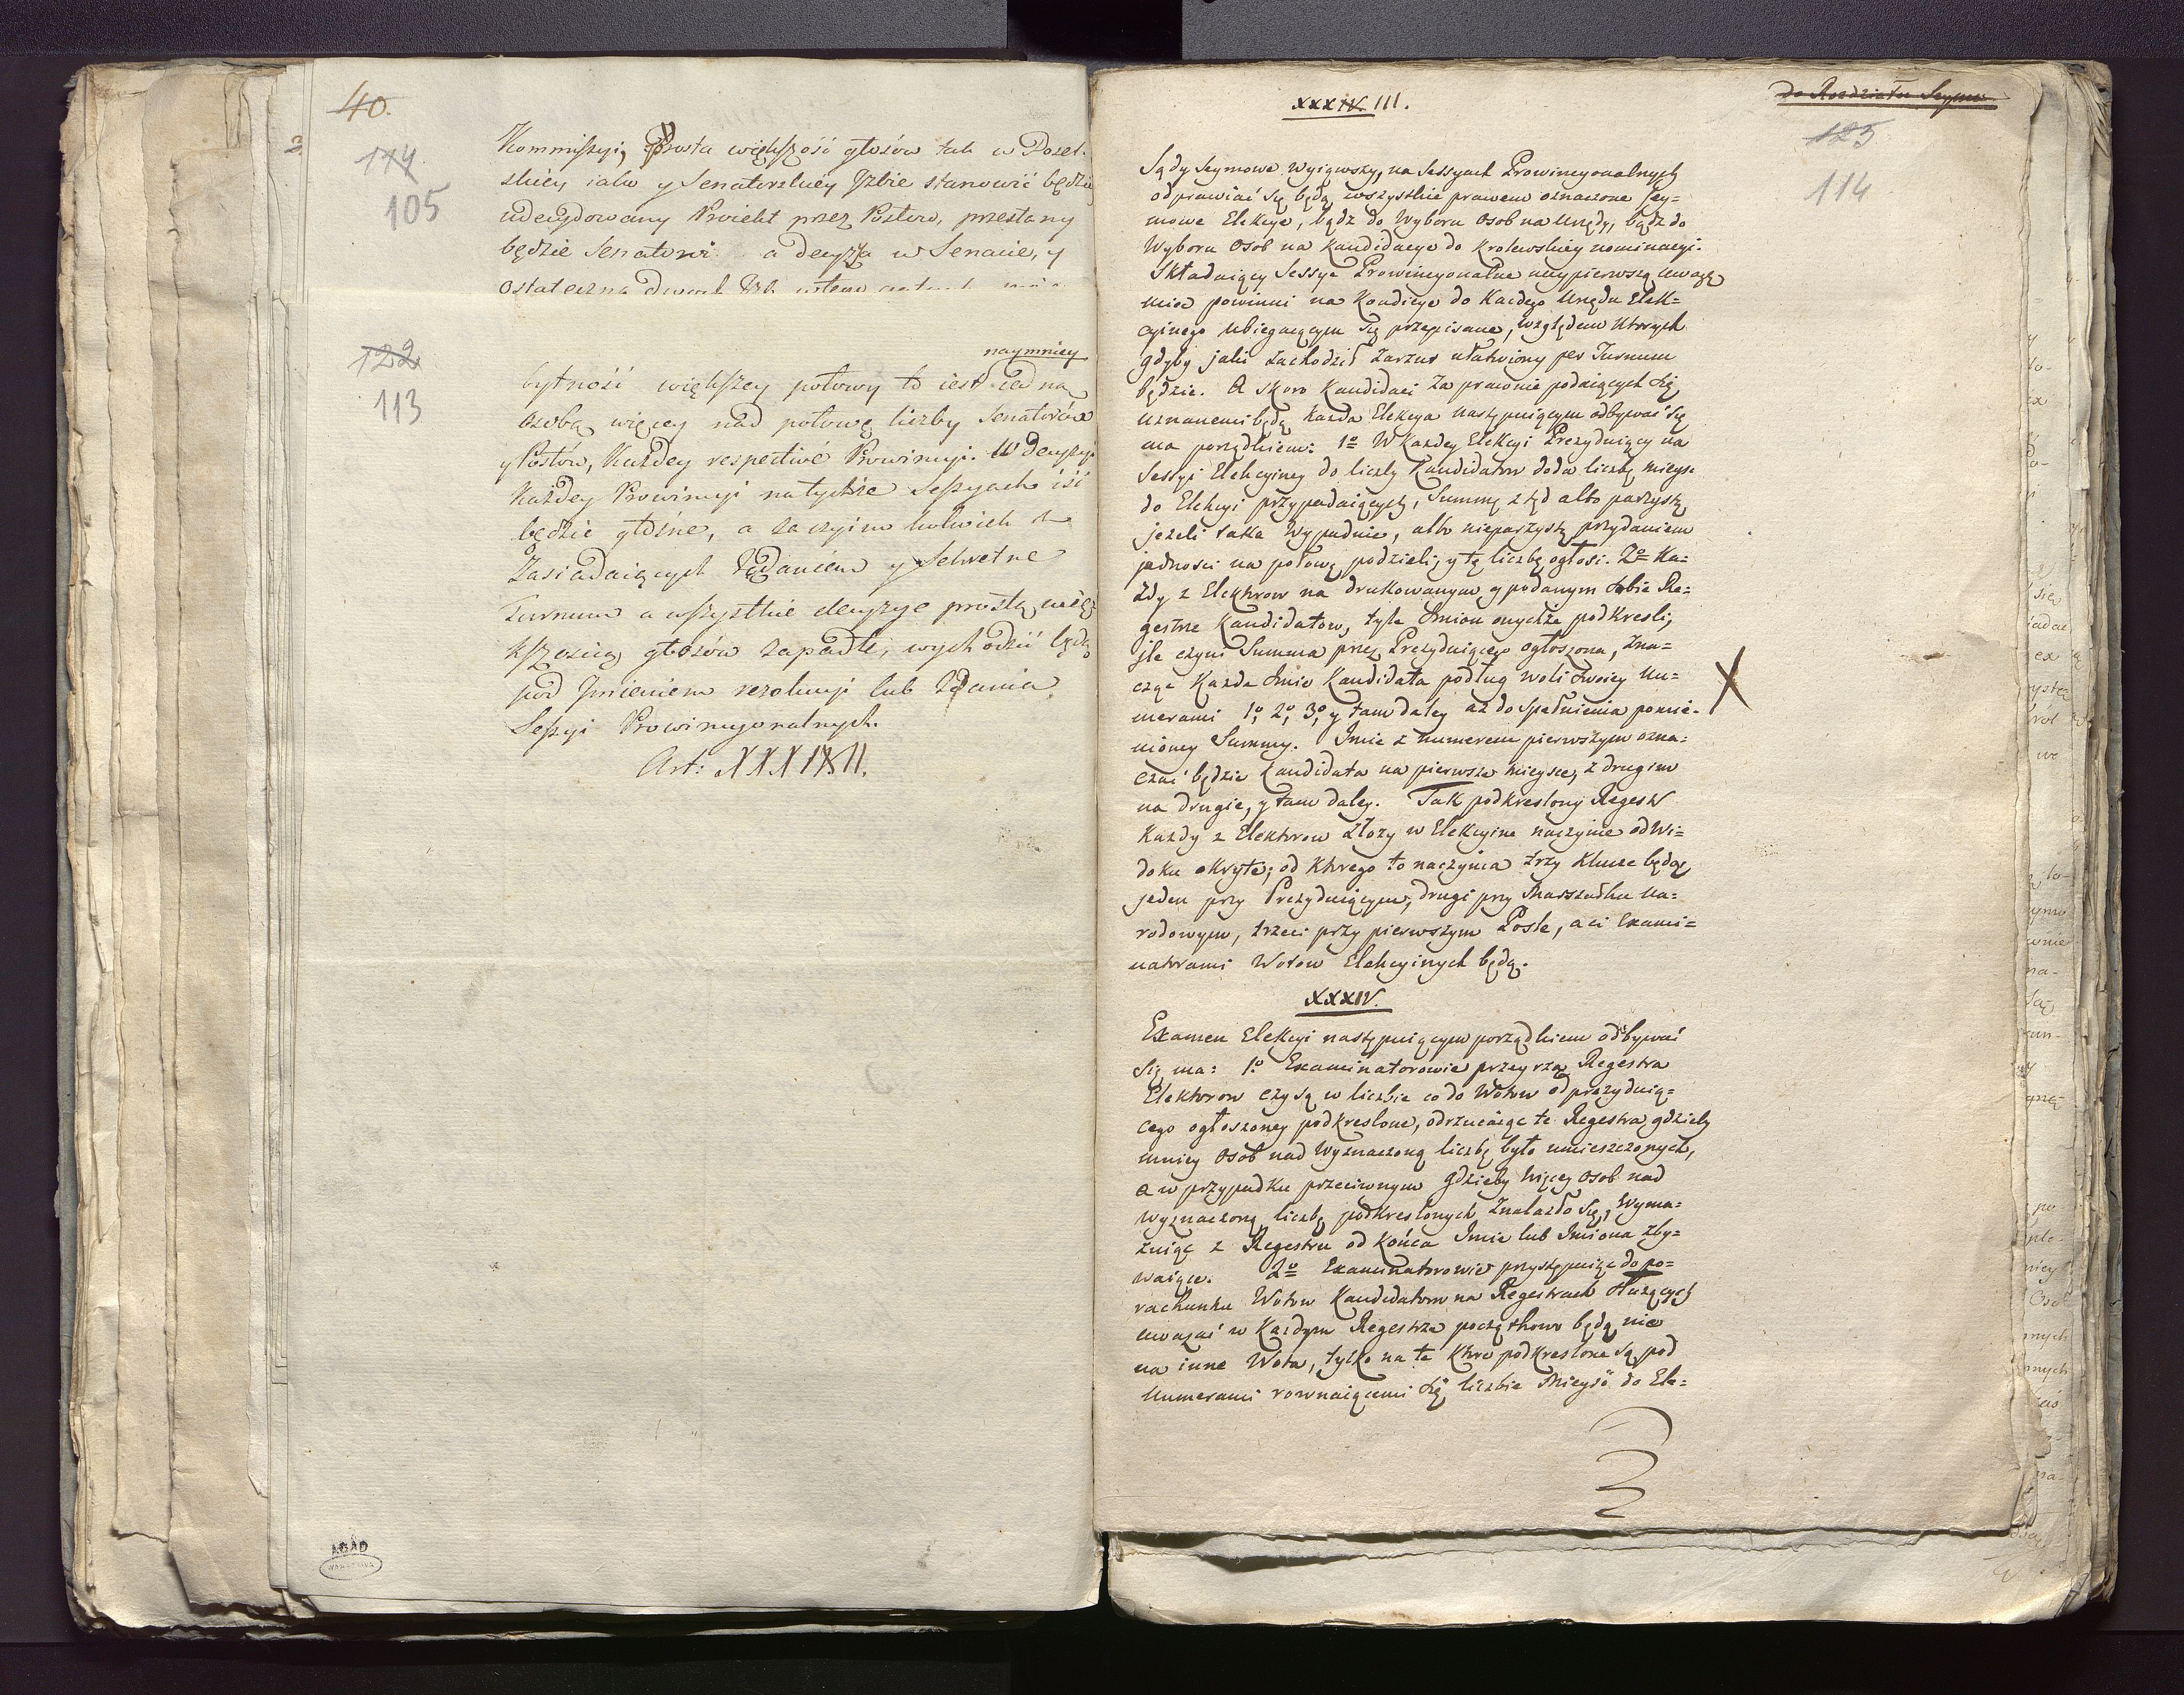 40.
114.
105
Kommissyi, Prosta większość głosów tak w Posel-
skiey iako y Senatorskiey Izbie stanowić będzie
udecydowany Proiekt przez Posłow, przesłany
będzie Senatowi a decyzya w Senacie, y
ostateczna dwoch Izb
122
113
naymniey
bytność większey połowy to iest iedną
osobą więcey nad połowę liczby Senatorów
y Posłów, każdey respective Prowincyi. W decyzyi
każdey Prowincyi na tychże Sessyach iść
będzie głośne, a za czyim kolwiek z
Zasiadaiących Żądaniem y Sekretne
Turnum a wszystkie decyzye prostą więk
kszością głosów zapadłe, wychodzić będą
pod Imieniem rezolucyi lub Zdania
Sessyi Prowincyonalnych.
Art: XXXIVIII.
XXXIV. III.
do Rozdziału Seym
123
114
Sądy Seymowe wyiąwszy, na Sessyach Prowincyonalnych
odprawiać się będą wszystkie prawem oznaczone Sey=
mowe Elekcye, bądz do Wyboru Osob na Urzędy, bądz do
Wyboru Osob na Kandidacye do Krolewskiey nominacyi.
Składaiący Sessye Prowincyonalne naypierwszą uwagę
mieć powinni na Kondicye do Każdego Urzędu Elek=
cyinego ubiegaiącym się przepisane, względem Ktorych
gdyby jaki zachodził Zarzut ułatwiony per Turnum
będzie. A skoro Kandidaci za prawnie podaiących się
uznanemi będą, Każda Elekcya następuiącym odbywać się
ma porządkiem: 1o W Kazdey Elekcyi Prezyduiący na
Sessyi Elekcyiney do liczby Kandidatow doda liczbę mieysc
do Elekcyi przypadaiących, Summę z tąd albo parzystę
jeżeli taka Wypadnie, albo nieparzystę przydaniem
jedności na połowę podzieli, y tę liczbę ogłosi. 2o Ka=
żdy z Elektorow na drukowanym y podanym sobie Re=
gestrze Kandidatow, tyle Imion onychże podkresli,
jle czyni Summa przez Prezyduiącego ogłoszona, Zna=
cząc Każde Imie Kandidata podług woli swoiey Nu=
merami 1o, 2o, 3o, y tam daley aż do spełnienia pomie=
nioney Summy. Imie z numerem pierwszym ozna=
czać będzie Kandidata na pierwsze mieysce, z drugim
na drugie, y tam daley. Tak podkreslony Regestr
Kazdy z Elektorow złozy w Elekcyine naczynie od Wi=
doku okryte; od Ktorego to naczynia trzy Klucze będą
jeden przy Prezyduiącym, drugi przy Marszałku Na=
rodowym, trzeci przy pierwszym Posle, a ci Exami=
natorami Wotow Elekcyinych będą.
XXXIV.
Examen Elekcyi następuiącym porządkiem odbywać
się ma: 1o Examinatorowie przeyrzą Regestra
Elektorow czy są w liczbie co do Wotow od prezyduią=
cego ogłoszoney podkreslone, odrzucaiąc te Regestra gdzieby
mniey Osob nad Wyznaczoną liczbę było umieszczonych,
a w przypadku przeciwnym gdzieby więcey Osob nad
Wyznaczoną liczbę podkreslonych Znalazło się, Wyma=
zuiąc z Regestru od końca Imie lub Imiona zby=
waiące. 2o Examinatorowie przystępuiąc do po=
rachunku Wotow Kandidatom na Regestrach służących
uwazać w Kazdym Regestrze początkowo będą nie
na inne Wota, tylko na te Ktore podkreslone są pod
Numerami rownaiącemi się liczbie Mieysc do Ele=
AGAD
WARSZAWA